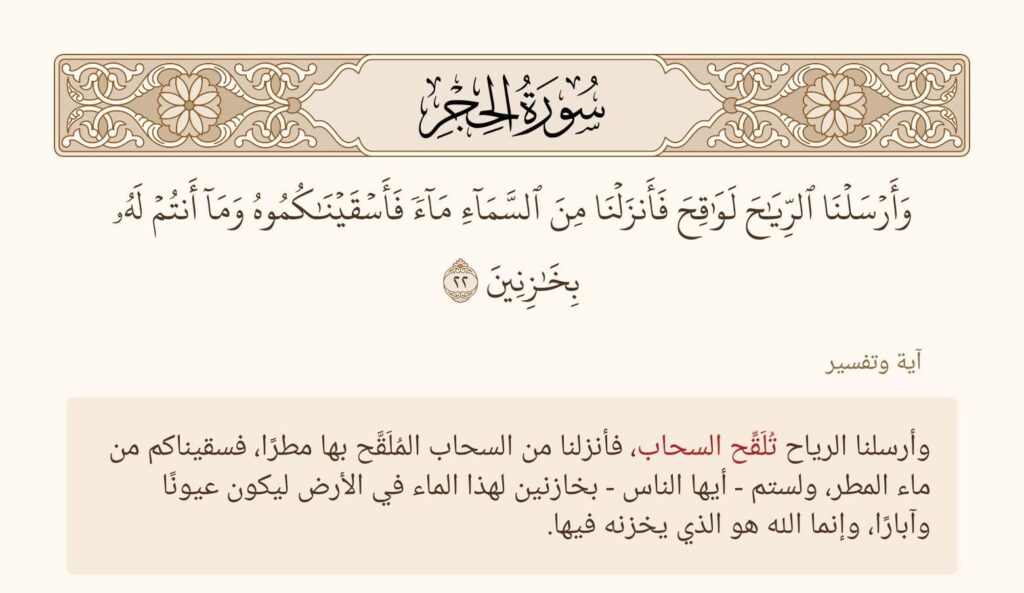 سُورَةُ الحِجْرِ
وَأَرۡسَلۡنَا ٱلرِّيَٰحَ لَوَٰقِحَ فَأَنزَلۡنَا مِنَ ٱلسَّمَآءِ مَآءٗ فَأَسۡقَيۡنَٰكُمُوهُ وَمَآ أَنتُمۡ لَهُۥ
بِخَٰزِنِينَ ٢٢
آية وتفسير
وأرسلنا الرياح تُلَقِّح السحاب، فأنزلنا من السحاب المُلَقَّح بها مطرًا، فسقيناكم من
ماء المطر، ولستم - أيها الناس - بخازنين لهذا الماء في الأرض ليكون عيونًا
وآبارًا، وإنما الله هو الذي يخزنه فيها.